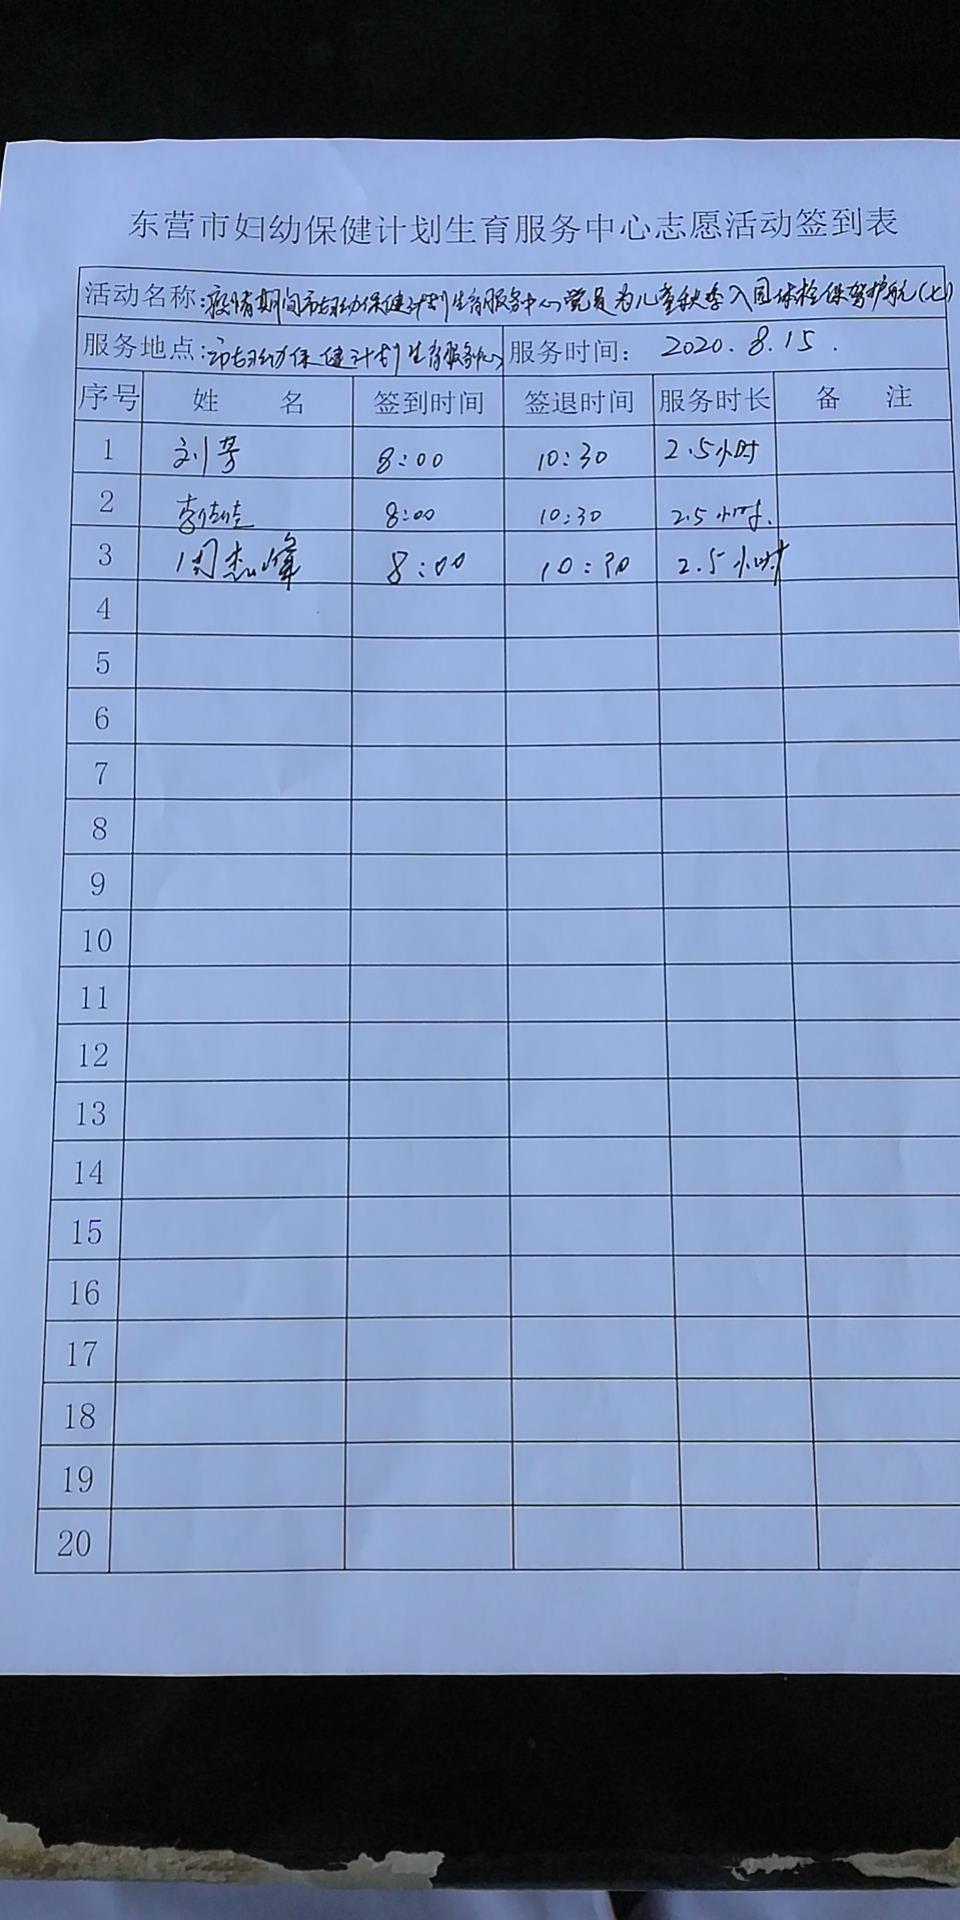 东营市妇幼保健计划生育服务中心志愿活动签到表
活动名称:疫情期间市妇幼保健计划生育服务中心党员为儿童秋季入园体检保驾护航(七)
服务地点:市妇幼保健计划生育服务中心 服务时间: 2020.8.15.
序号 姓 名 签到时间 签退时间 服务时长 备 注
1 刘芳 8:00 10:30 2.5小时
2 李佳佳 8:00 10:30 2.5小时.
3 周杰峰 8:00 10:30 2.5小时
4
5
6
7
8
9
10
11
12
13
14
15
16
17
18
19
20